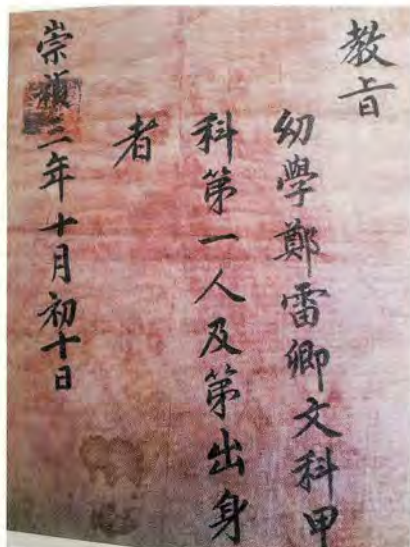 教旨
幼學鄭雷卿文科甲
科第一人及第出身
者
崇禎三年十月初十日